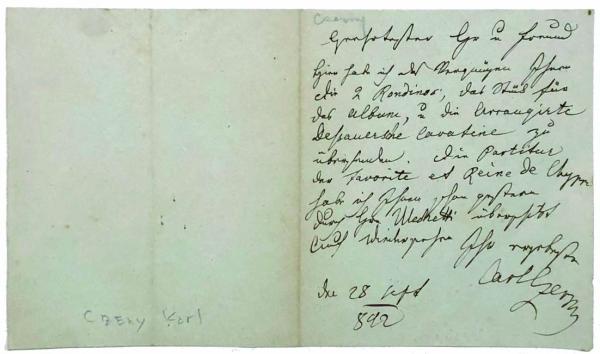 Czerny
Geehrtester Hr u Freund
Hier hab ich das Vergnügen Ihnen
die 2 Rondinos, das Stück für
das Album, u die arrangirte
Dessauersche Cavatine zu
übersenden. Die Partitur
der Favorite et Reine de Chypre
habe ich Ihnen schon gestern
durch Hrn Mechetti überschickt
Auf Wiedersehen Ihr ergebenster
Carl Czerny
den 28 Sept
842
Czeny Karl